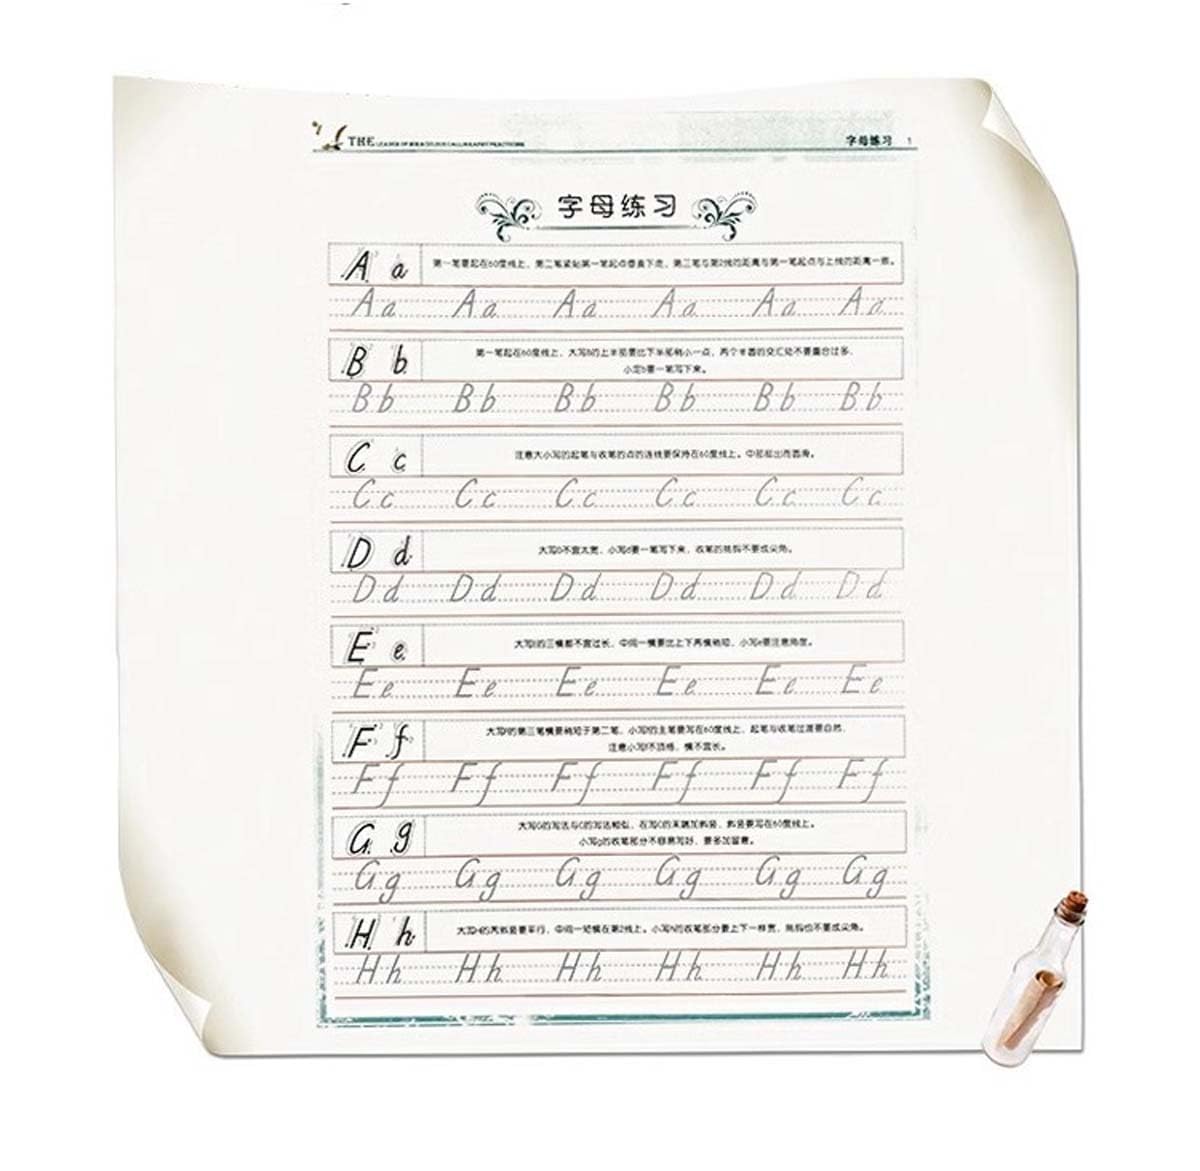 THE LEADER OF MIRACULOUS CALLIGRAPHY PRACTICING
字母练习 1
字母练习
A a 第一笔要起在60度线上，第二笔紧贴第一笔起点垂直下走，第三笔与第2线的距离与第一笔起点与上线的距离一致。
Aa Aa Aa Aa Aa Aa
B b 第一笔起在60度线上，大写B的上半部要比下半部稍小一点，两个半圆的交汇处不要重合过多，
小写b要一笔写下来。
Bb Bb Bb Bb Bb Bb
C c 注意大小写的起笔与收笔的点的连线要保持在60度线上。中部超出而圆滑。
Cc Cc Cc Cc Cc Cc
D d 大写D不宜太宽，小写d要一笔写下来，收笔的挑钩不要成尖角。
Dd Dd Dd Dd Dd Dd
E e 大写E的三横都不宜过长，中间一横要比上下两横稍短，小写e要注意角度。
Ee Ee Ee Ee Ee Ee
F f 大写F的第三笔横要稍短于第二笔，小写f的主笔要写在60度线上，起笔与收笔过渡要自然，
注意小写f不顶格，横不宜长。
Ff Ff Ff Ff Ff Ff
G g 大写G的写法与C的写法相似，在写C的末端加斜竖，斜竖要写在60度线上。
小写g的收笔部分不容易写好，要多加留意。
Gg Gg Gg Gg Gg Gg
H h 大写H的两斜竖要平行，中间一短横在第2线上。小写h的收笔部分要上下一样宽，挑钩也不要成尖角。
Hh Hh Hh Hh Hh Hh